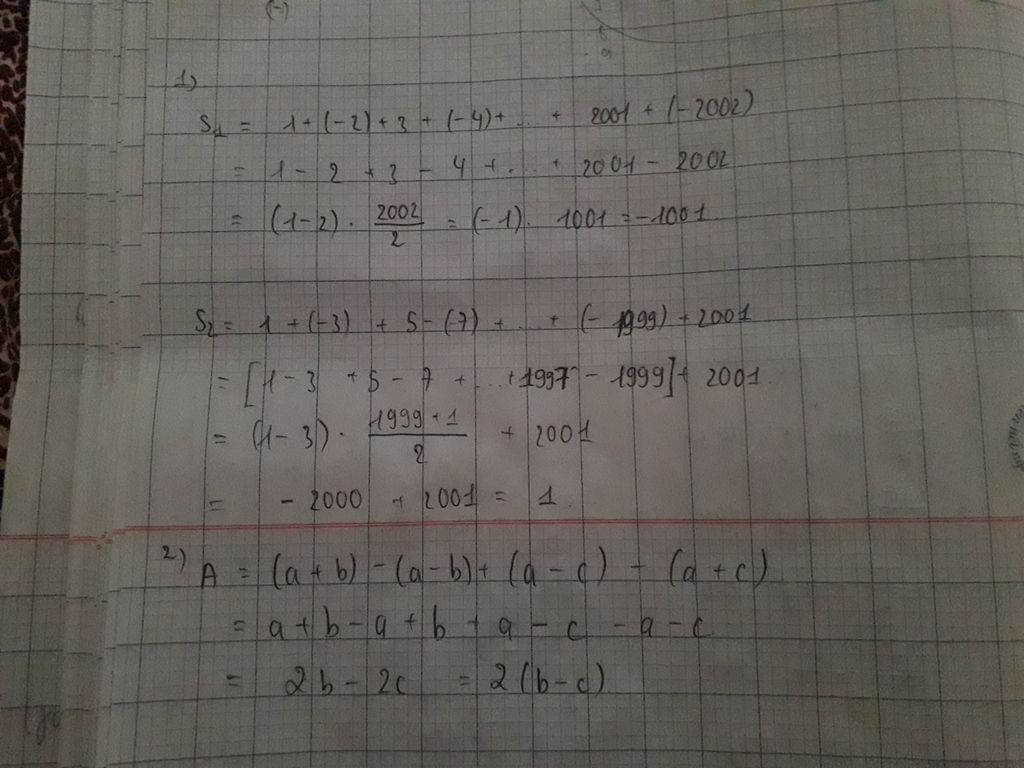 1)
S₁ = 1 + (-2) + 3 + (-4) + ... + 2001 + (-2002)
= 1 - 2 + 3 - 4 + ... + 2001 - 2002
= (1-2) . 2002/2 = (-1) . 1001 = -1001
S₂ = 1 + (-3) + 5 - (7) + ... + (-1999) + 2001
= [1 - 3 + 5 - 7 + ... + 1997 - 1999] + 2001
= (1 - 3) . (1999 + 1)/2 + 2001
= - 2000 + 2001 = 1.
2) A = (a + b) - (a - b) + (a - c) - (a + c)
= a + b - a + b + a - c - a - c
= 2b - 2c = 2(b - c)